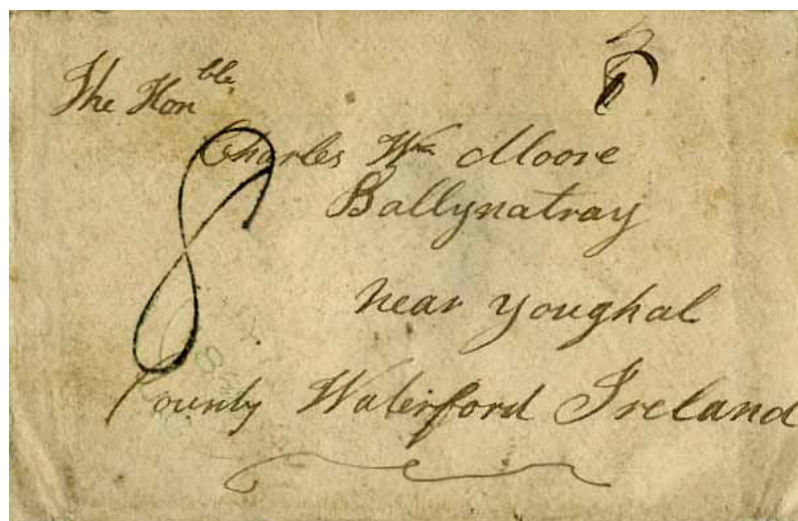 The Hon^ble
Charles Wm Moore
Ballynatray
8
near Youghal
County Waterford Ireland